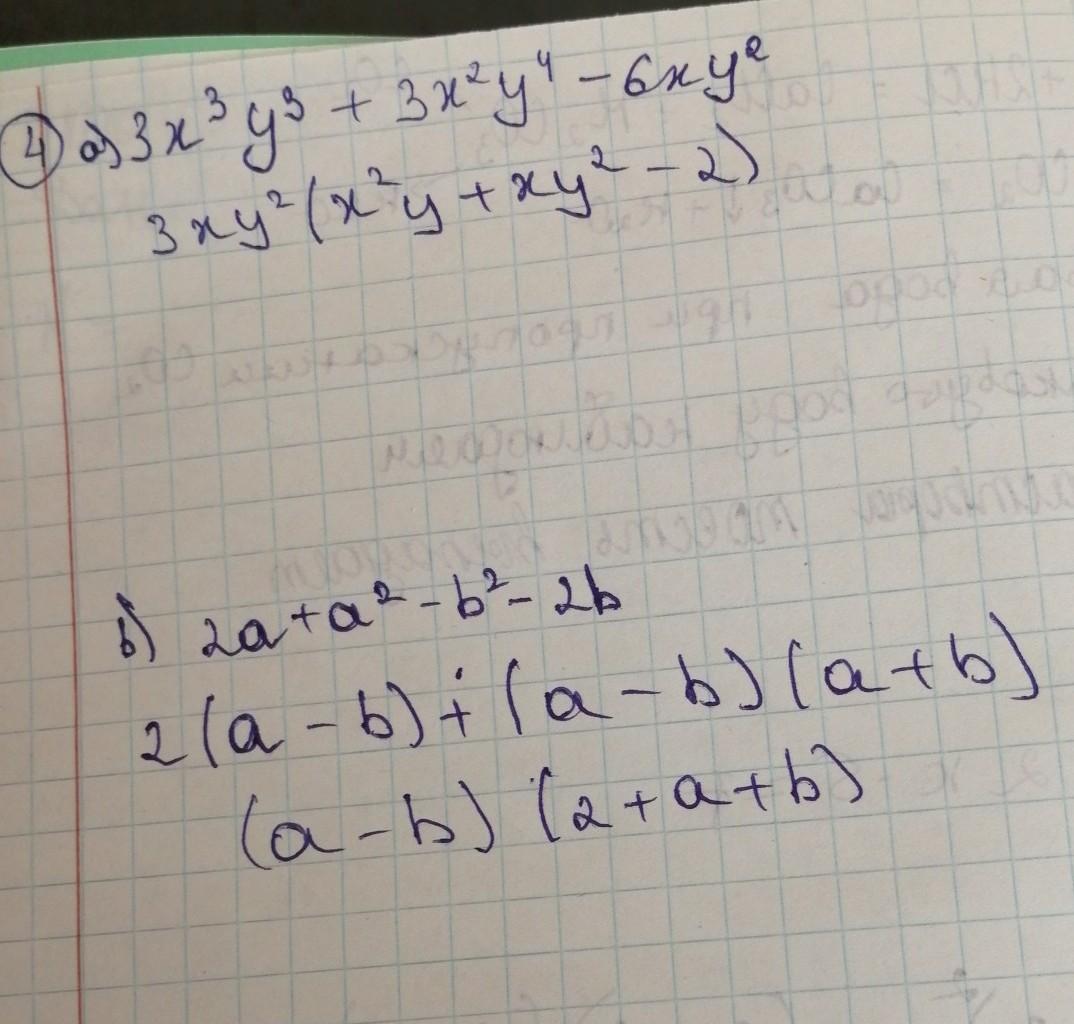 ④ а) 3x³y³ + 3x²y⁴ - 6xy²
3xy²(x²y + xy² - 2)
б) 2a + a² - b² - 2b
2(a - b) + (a - b)(a + b)
(a - b) (2 + a + b)